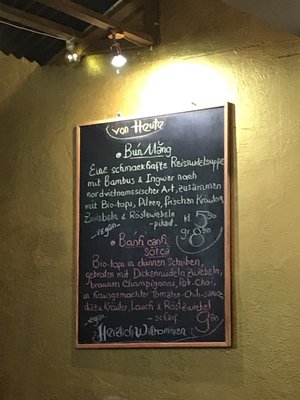 von Heute
Bún Măng
Eine schmackhafte Reisnudelsuppe
mit Bambus & Ingwer nach
nordvietnamesischer Art, zusammen
mit Bio-tofu, Pilzen, frischen Kräutern
Zwiebeln & Röstzwiebeln kl. 5,90
-vegan- -pikant- gr. 8,90
Bánh canh
Bio-tofu in dünnen Scheiben,
gebraten mit Dickennudeln Zwiebeln,
braunen Champignons, Pak-Choi,
in hausgemachter Tomaten-Chili-sauce,
dazu Kräuter, Lauch & Röstzwiebel
-vegan- -scharf- 9,80
Herzlich Willkommen